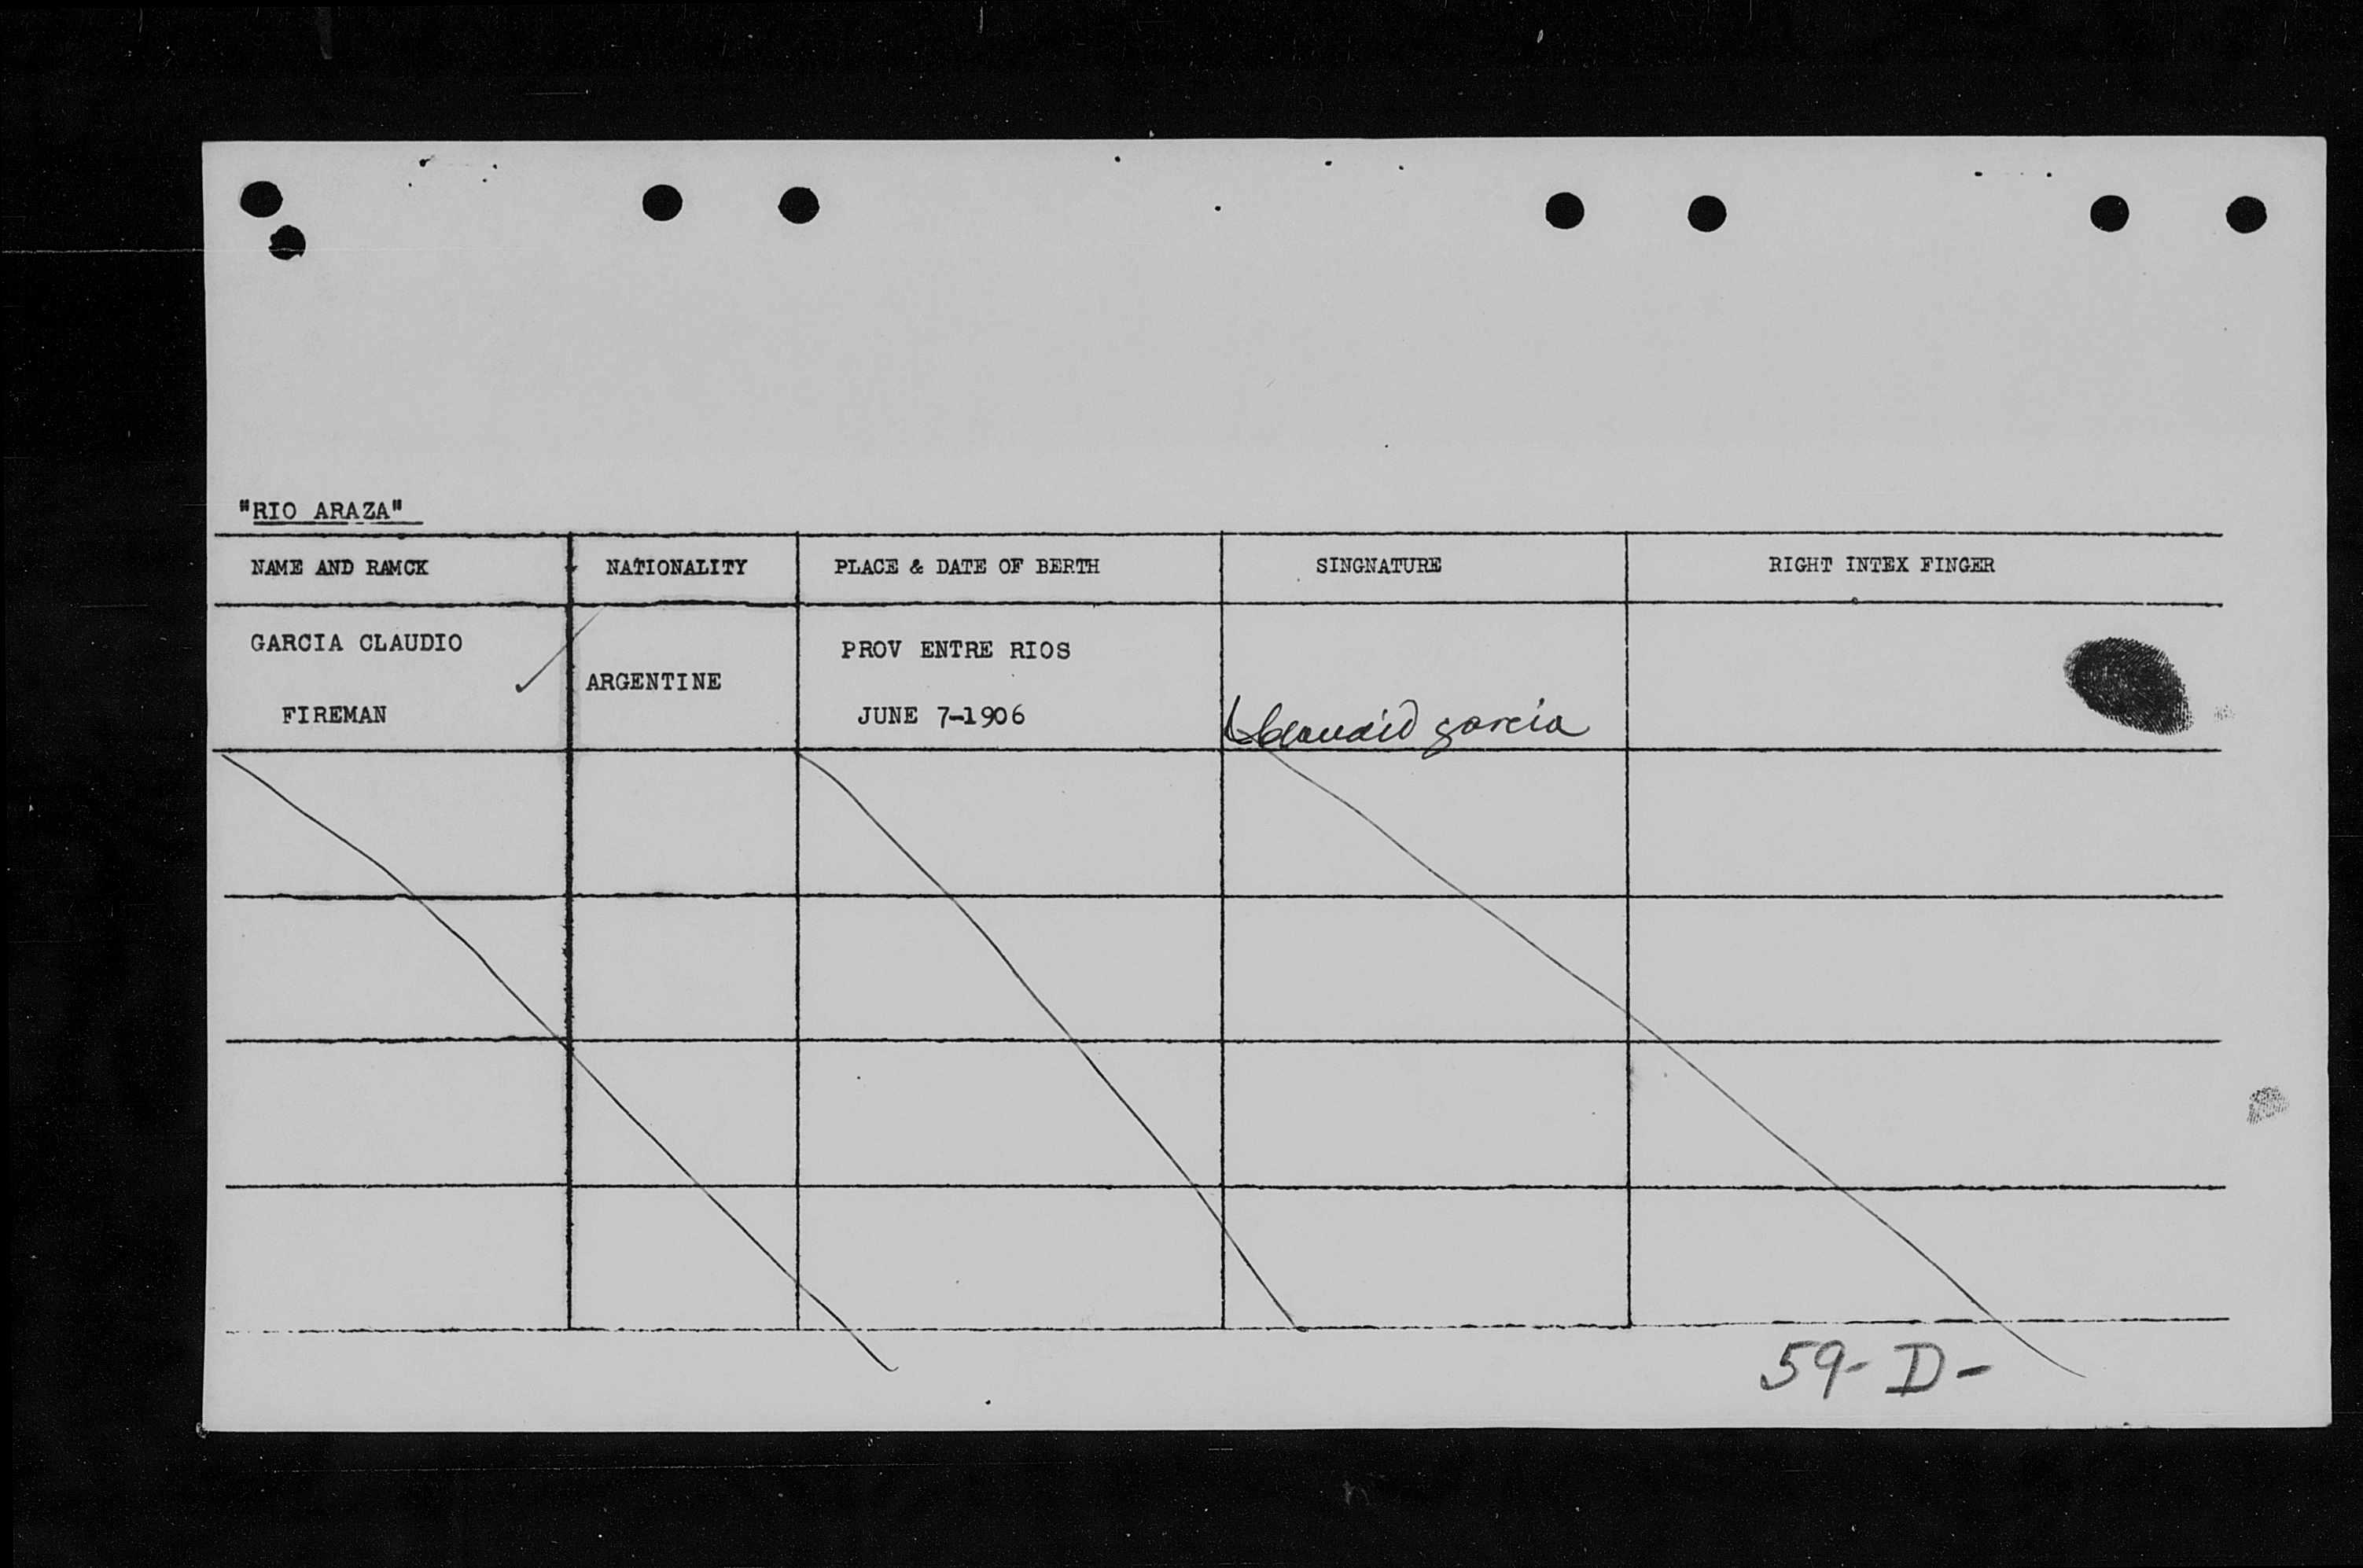 "RIO ARAZA"
NAME AND RAMCK NATIONALITY PLACE & DATE OF BERTH SINGNATURE RIGHT INTEX FINGER
GARCIA CLAUDIO
FIREMAN
ARGENTINE
PROV ENTRE RIOS
JUNE 7-1906
Claudio garcia
59-D-